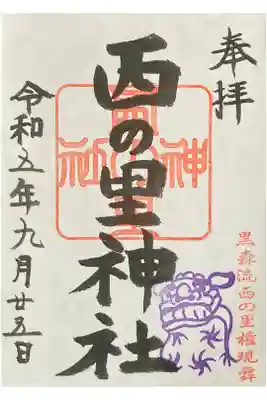 奉拝
西の里神社
令和五年九月廿五日
黒森流西の里権現舞